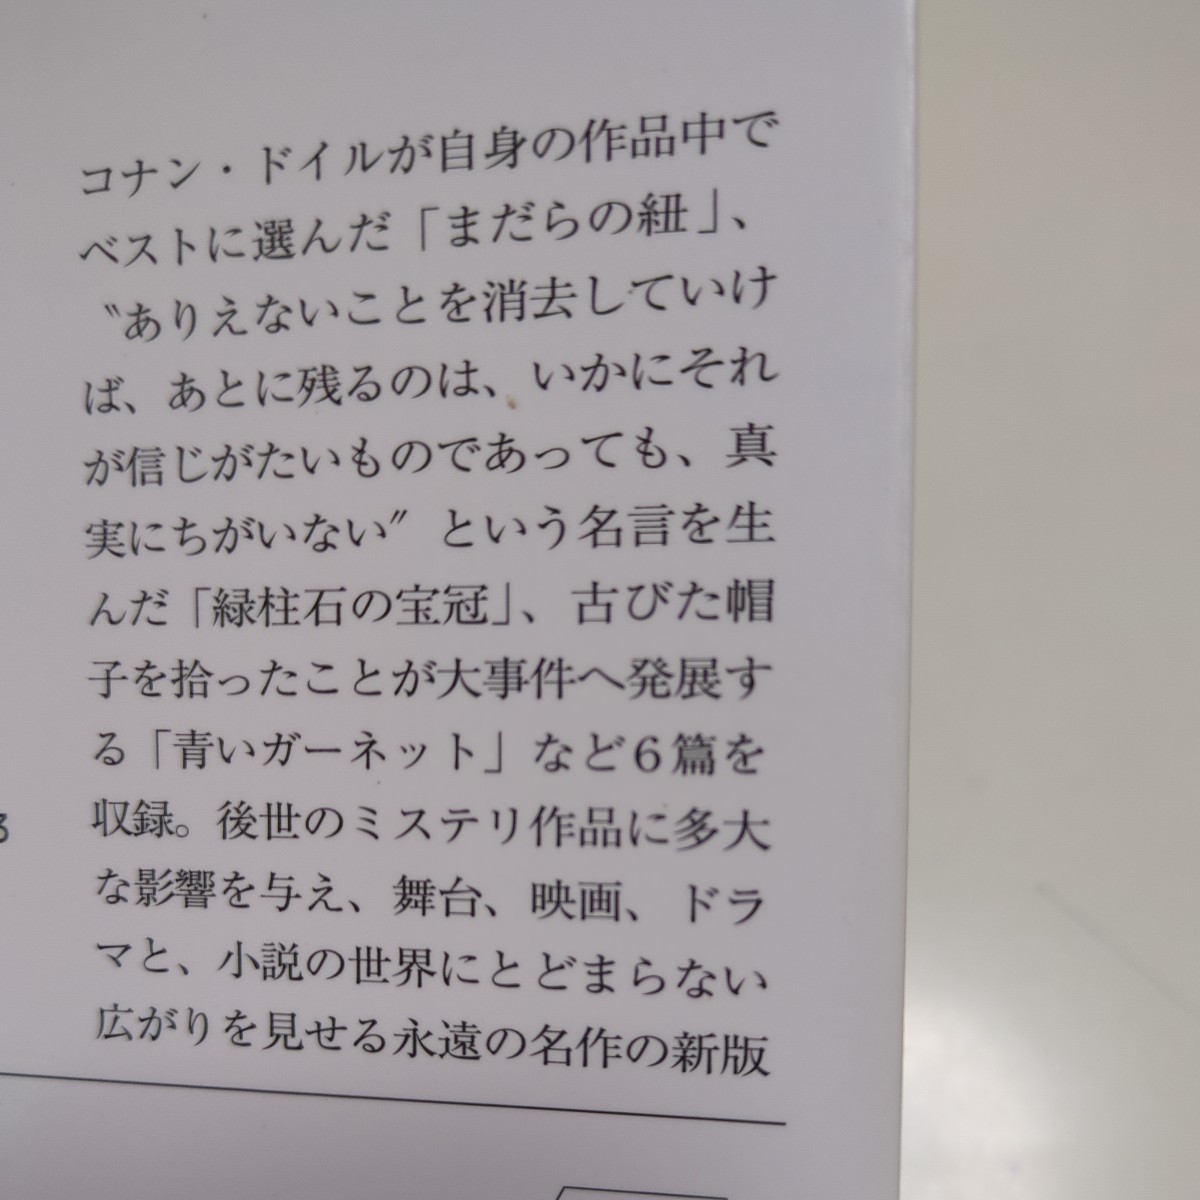 コナン・ドイルが自身の作品中で
ベストに選んだ「まだらの紐」、
〝ありえないことを消去していけ
ば、あとに残るのは、いかにそれ
が信じがたいものであっても、真
実にちがいない〟という名言を生
んだ「緑柱石の宝冠」、古びた帽
子を拾ったことが大事件へ発展す
る「青いガーネット」など6篇を
収録。後世のミステリ作品に多大
な影響を与え、舞台、映画、ドラ
マと、小説の世界にとどまらない
広がりを見せる永遠の名作の新版